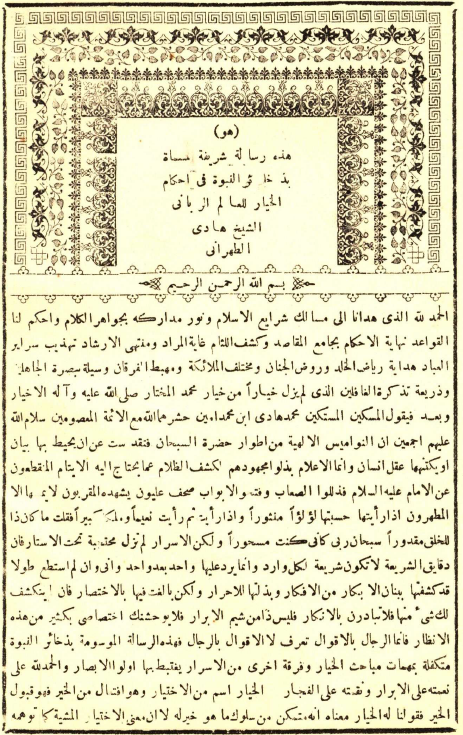 (هو)
هذه رسالة شريفة مسماة
بذخائر النبوة فى احكام
الخيار للعالم الربانى
الشيخ هادى
الطهرانى
بسم الله الرحمن الرحيم
الحمد لله الذى هدانا الى مسالك شرايع الاسلام ونور مداركه بجواهر الكلام واحكم لنا
القواعد نهاية الاحكام بجامع المقاصد وكشف اللثام غاية المراد ومنتهى الارشاد تهذيب سراير
العباد هداية رياض الخلد وروض الجنان ومختلف الملائكة ومهبط الفرقان وسيلة تبصرة الجاهل
وذريعة تذكرة الغافلين الذى لم يزل خياراً من خيار محمد المختار صلى الله عليه وآله الاخيار
وبعد فيقول المسكين المستكين محمد هادى ابن محمد امين حشرهما الله مع الائمة المعصومين سلام الله
عليهم اجمعين ان النواميس الالهية من اطوار حضرة السبحان فتقدست عن ان يحيط بها بيان
اويكتنهها عقل انسان وانما الاعلام بذلوا مجهودهم لكشف الظلام عما يحتاج اليه الايتام المنقطعون
عن الامام عليه السلام فذللوا الصعاب وفتحوا الابواب صحف عليون يشهده المقربون لايمسها الا
المطهرون اذا رأيتها حسبتها لؤلؤاً منثوراً واذا رأيت ثم رأيت نعيماً وملكا كبيراً فقلت ما كان ذا
للخلق مقدوراً سبحان ربى كانى كنت مسحوراً ولكن الاسرار لم تزل محتجبة تحت الاستار فان
دقايق الشريعة لا تكون شريعة لكل وارد وانما يرد عليها واحد بعد واحد وانى وان لم استطع طولا
قد كشفتها ببنان الابكار من الافكار وبذلتها للاحرار ولكن بالغت فيها بالاختصار فان لم ينكشف
لك شىء منها فلا تبادرن بالانكار فليس ذا من شيم الابرار فلا يوحشنك اختصاصى بكثير من هذه
الانظار فانما الرجال بالاقوال تعرف لا الاقوال بالرجال فهذه الرسالة الموسومة بذخائر النبوة
متكفلة بمهمات مباحث الخيار وفرقة اخرى من الاسرار يغتبط بها اولوا الابصار والحمد لله على
نعمته على الابرار ونقمته على الفجار الخيار اسم من الاختيار وهو افتعال من الخير فهو قبول
الخير فقولنا له الخيار معناه انه متمكن من سلوك ما هو خير له لا ان معنى الاختيار المشية كما توهمه